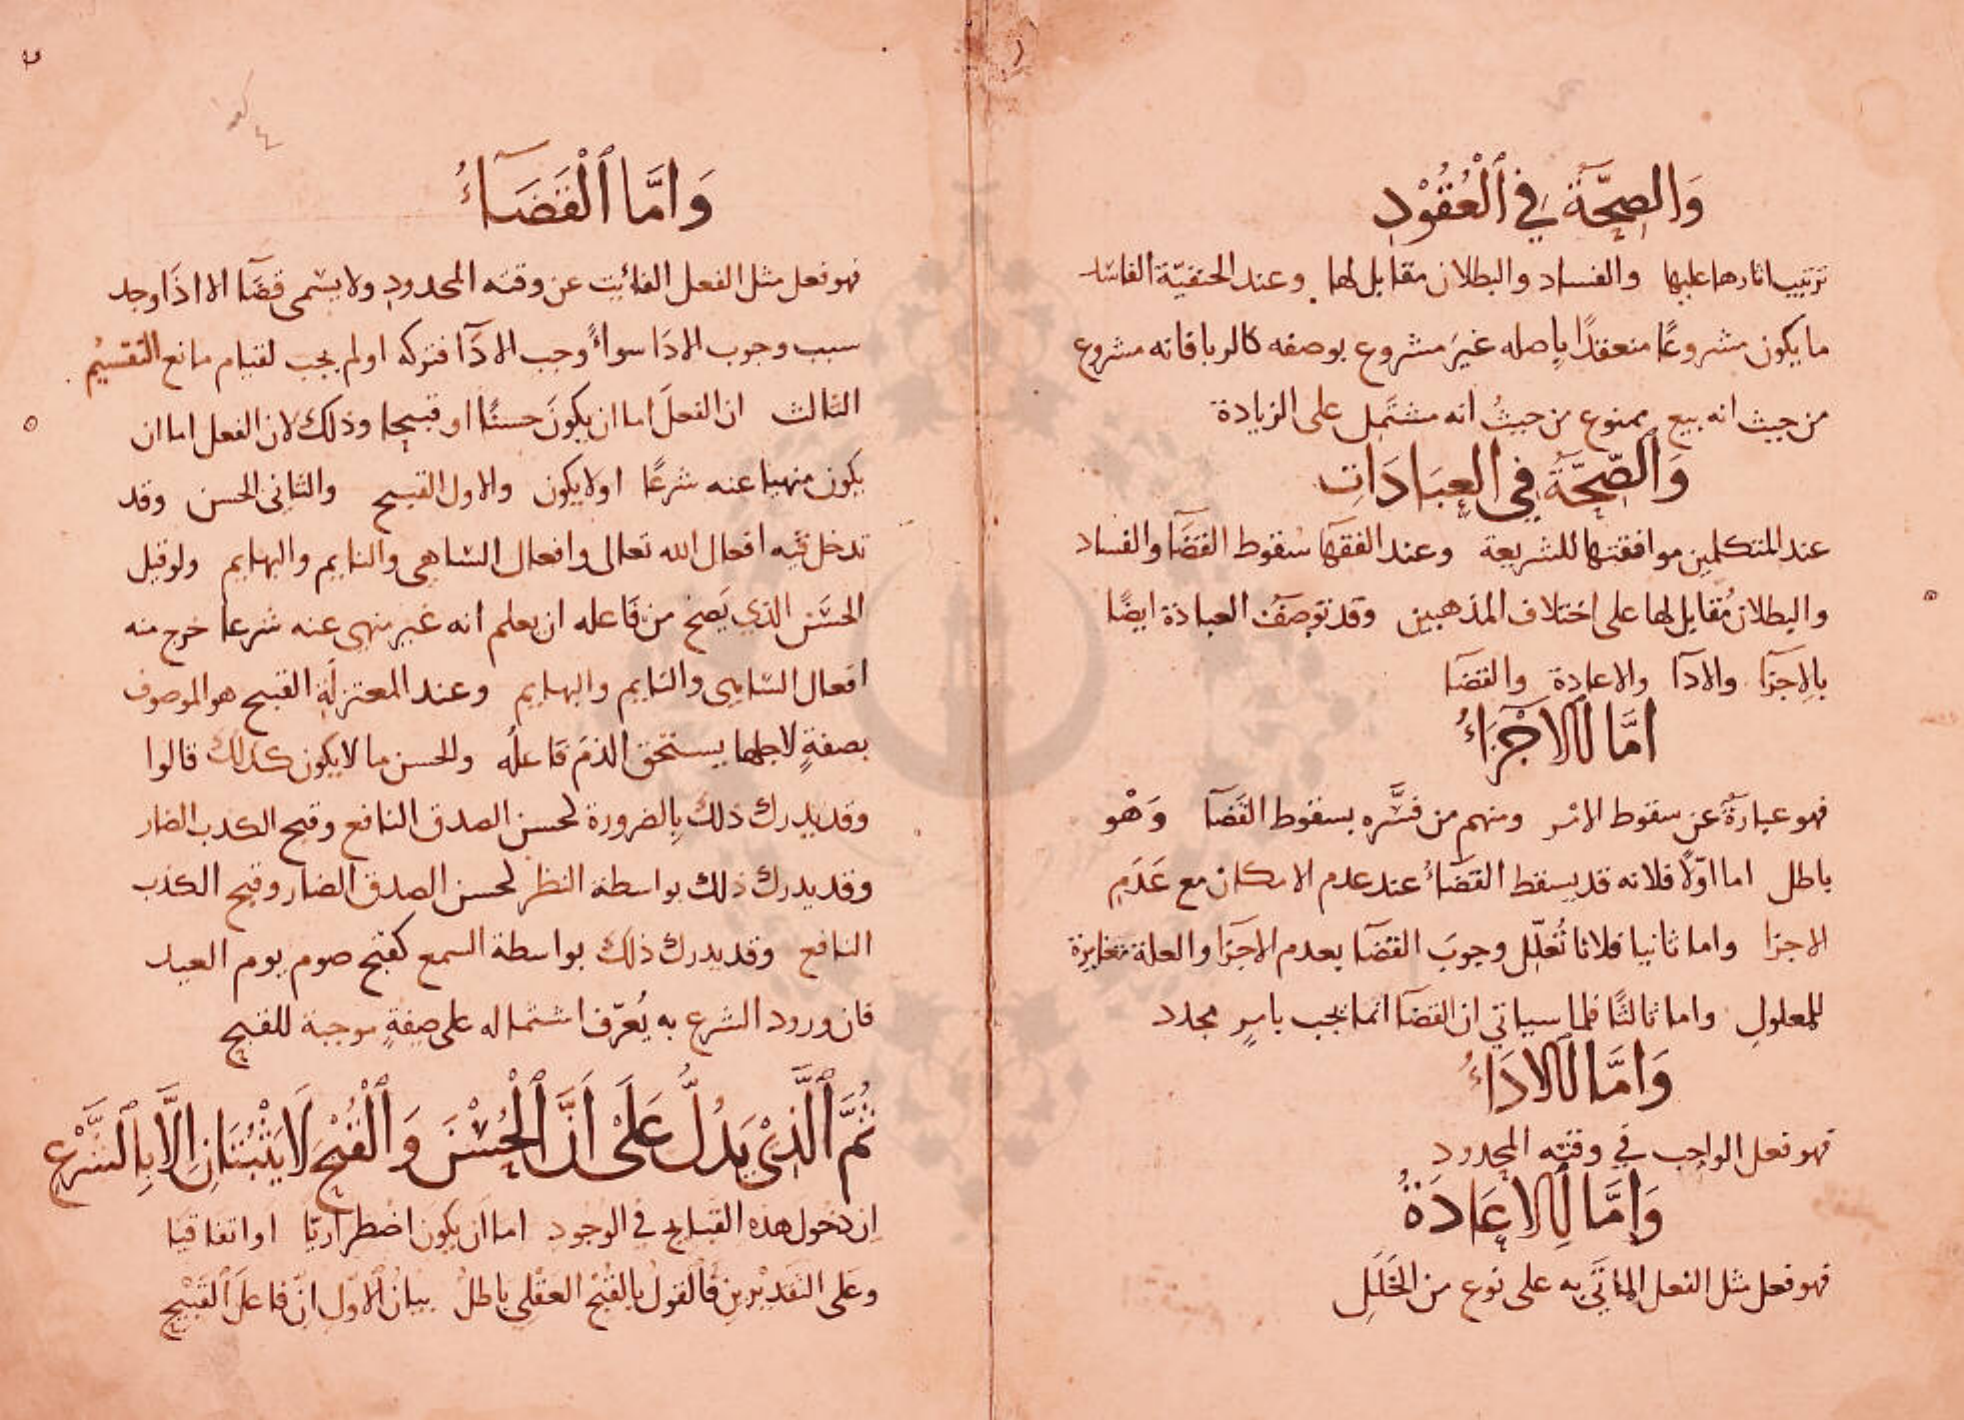 وَالصِّحَّةُ فِي ٱلْعُقُوْدِ
ترتيب اثارها عليها والفساد والبطلان مقابل لها وعند الحنفيّة الفاسد
ما يكون مشروعًا منعقدًا بِاصله غيرَ مشروع بوصفه كالربا فانه مشروع
من حيث انه بيع ممنوع من حيثُ انه مشتمل على الزيادة
وَالصِّحَّةُ فِي العِبَادَاتِ
عند المتكلمين موافقتها للشريعة وعند الفقهآ سُقوط القضَآ والفساد
والبطلان مُقابل لها على اختلاف المذهبين وقد تُوصَفُ العبادة ايضًا
بِالِاجزَآ والادَآ والاعادة والقضَآ
امَّا ٱلاجْزَآءُ
فهو عبارَةٌ عن سقوط الامر ومنهم من فسَّره بسقوط القَضَآ وَهْو
باطل اما اوّلًا فلانه قد يسقط القضَآءُ عند عدم الامكان مع عَدَمِ
الاجزا واما ثانيا فلانا نُعلّل وجوبَ القضَآ بعدم الاجزَا والعلة مغايرة
للمعلولِ واما ثالثًا فلما سياتي ان القضَآ انما يجب بامرٍ مجدد
وَامَّا ٱلادَآءُ
فهو فعل الواجب في وقته المحدودِ
وَامَّا ٱلاِعَادَةُ
فهو فعل مثل الفعل الماتَي به على نوع من الخَلَلِ
وَامَّا ٱلْقَضَآءُ
فهو فعل مثل الفعل الفائِت عن وقته المحدودِ ولا يسَمى قضَآ الا اذَا وجد
سبب وجوب الادَا سواءً وجب الادَآ فتركه او لم يجب لقيام مانع التقسيْمُ
الثالث ان الفعلَ اما ان يكونَ حسنًا او قبيحا وذلك لان الفعل اما ان
يكون منهيا عنه شرعًا او لا يكون والاول القبيح والثانى الحسن وقد
تدخل فيه افعال الله تعالى وافعال السَّاهى والنايم والبهايم ولو قيل
الحسَن الذي يَصح من فَاعله ان يعلم انه غير منهى عنه شرعا خرج منه
افعال السَّاهى والنَايم والبهايم وعند المعتزلَةِ القبيح هو الموصوف
بصفةٍ لاجلها يستحق الذمَ فَاعلُه والحسن ما لا يكون كذلك قالوا
وقد يدرك ذلك بِالضرورة كحسن الصدق النافع وقبح الكذب الضار
وقد يدرك ذلك بواسطة النظر كحسن الصدق الضار وقبح الكذب
النافع وقد يدرك ذلك بواسطة السمع كقبح صوم يوم العيد
فان ورود الشرع به يُعرّف اشتماله على صفةٍ موجبة للقبح
ثُمَّ ٱلَّذِىْ يَدُلُّ عَلَىْ أَنَّ ٱلْحُسْنَ وَٱلْقُبْحَ لَا يَثْبُتَانِ اِلَّا بِٱلشَّرْعِ
اِن دُخول هذه القبايح في الوجودِ اما ان يكون اضْطرارِيّا او اتفاقيا
وَعَلى التقديْرين فَالقولُ بِالقُبْح العقْلى بَاطلٌ بيانُ الاوّل انّ فَاعلَ القَبيْحِ